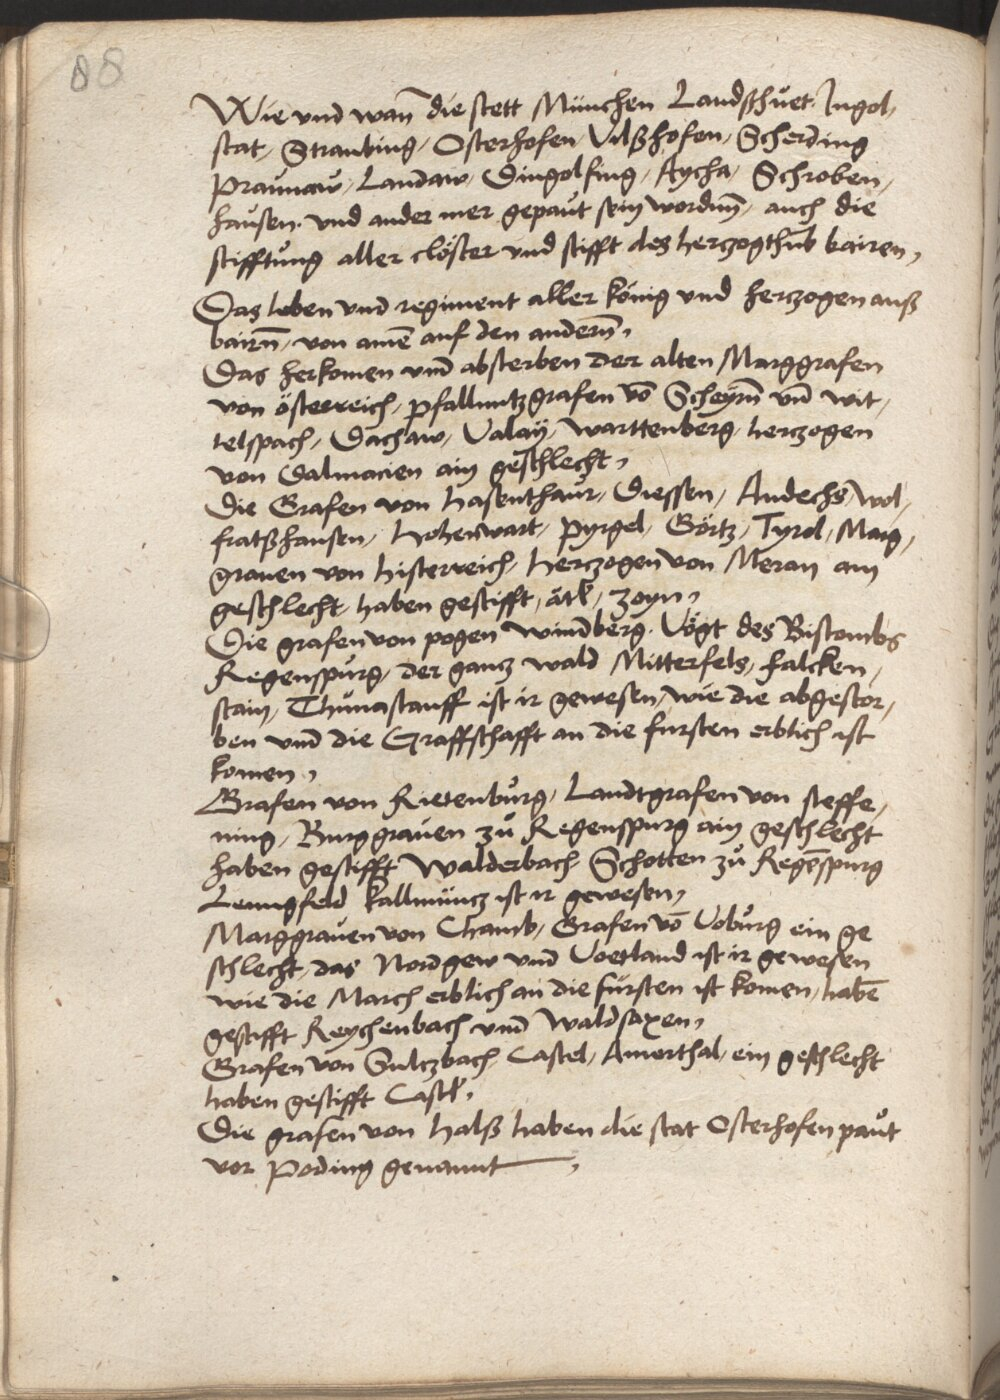 88
Wie vnd wan̄ die stett München Landshuet. Ingol,
stat, Straubing, Osterhofen, Vilßhofen, Scherding
Praunaw, Landaw, Dingolfing, Aycha, Schroben,
hausen. vnd ander mer gepaut sein wordenn̄, auch die
stifftung aller clöster vnd stifft des herczogthūb bairen,
Das leben vnd regiment aller könig vnd herczogen auß
bairn̄, von ainē auf den anderen̄,
Das herkomen vnd̄ absterben der alten Marggrafen
von österreich, pfallnntzgrafen vō Scheyrn̄ vn̄ wit,
telspach, Dachaw, Valaÿ, warttenberg, herczogen
von Dalmacien ain geschlecht,
Die Grafen von hasenthaur, Diessen, Andechs, wol,
fratßhausen, Hohenwart, pyrgel, Görtz, Tyrol, Marg,
grauen von histerreich, herczogen von Meran ain
geschlecht haben gestifft, ätl, zoyn,
Die grafen von pogen wind̄berg. Vögt des Bistombs
Regenspurg, der gancz wald Mitterfels, falcken,
stain, Thunastauff ist ir gewesen, wie die abgestor,
ben vnd̄ die Graffschafft an die fursten erblich ist
komen,
Grafen von Rietenburg, Landtgrafen von steffe,
ning, Burggrauen zů Regenspurg ain geschlecht
haben gestifft Walderbach Schotten zů Regēspurg
Lenngfeld kallmüncz ist ir gewesen,
Marggrauen von Chamb, Grafen vō Voburg ein ge
schlecht, das Nordgew vnd Voetland ist ir gewesen
wie die March erblich an die fürsten ist komen, habē
gestifft Reychenbach vnd̄ Waldsaxen,
Grafen von Sultzbach Castel, Amerthal, ein geschlecht
haben gestifft Castl,
Die grafen von Halß haben die stat Osterhofen paut
vor Peding genannt,